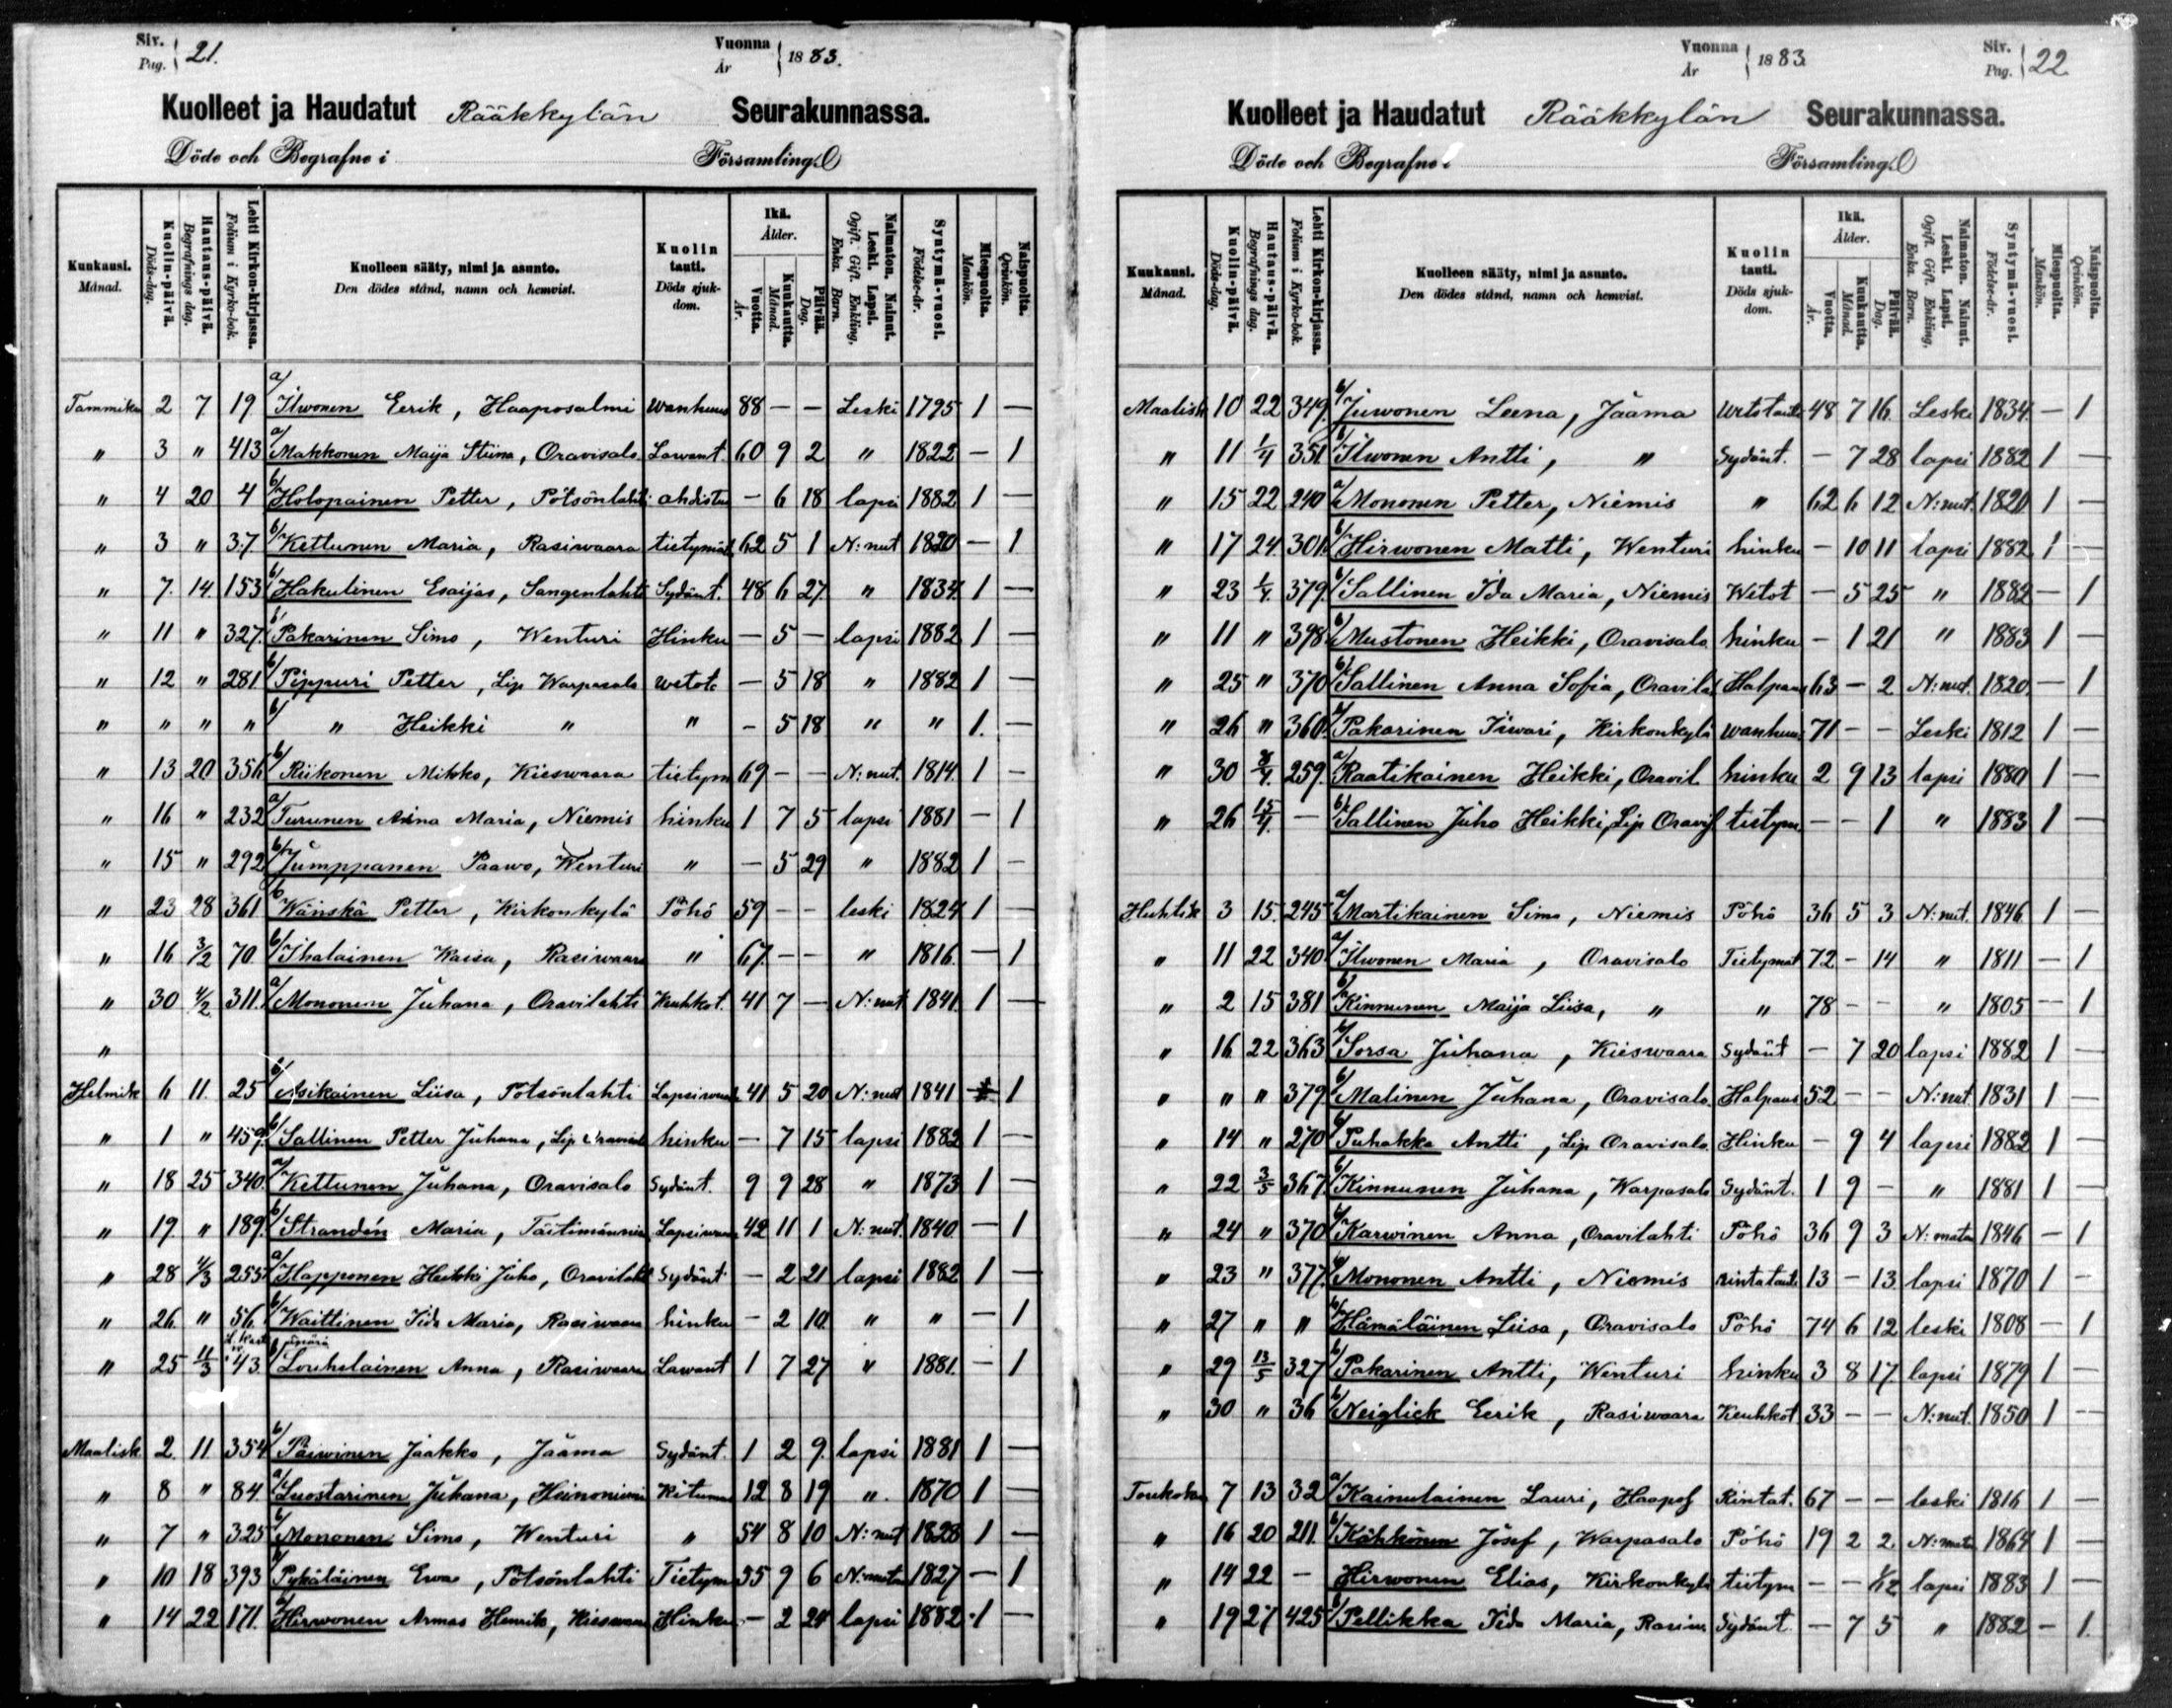 Siv. Pag. 21. Vuonna År 1883.
Kuolleet ja Haudatut Rääkkylän Seurakunnassa.
Döde och Begrafne i Församling.
Kuukausi. Månad. Kuolin-päivä. Döds-dag. Hautaus-päivä. Begrafnings dag. Lehti Kirkon-kirjassa. Folium i Kyrko-bok. Kuolleen sääty, nimi ja asunto. Den dödes stånd, namn och hemvist. Kuolin tauti. Döds sjuk-dom. Ikä. Ålder. Vuotta. År. Kuukautta. Månad. Päivää. Dag. Naimaton. Nainut. Leski. Lapsi. Ogift. Gift. Enkling, Enka. Barn. Syntymä-vuosi. Födelse-år. Miespuolta. Mankön. Naispuolta. Qvinkön.
Tammiku 2 7 19 a/ Ilwonen Eerik, Haaposalmi wanhuus 88 — — Leski 1795 1 —
" 3 " 413 a/ Makkonen Maija Stiina, Oravisalo Lawant. 60 9 2 " 1822 — 1
" 4 20 4 b/ Holopainen Petter, Pötsönlahti ahdistus — 6 18 lapsi 1882 1 —
" 3 " 37 b/ Kettunen Maria, Rasiwaara tietymät 62 5 1 N:nut 1820 — 1
" 7. 14. 153 b/ Hakulinen Esaijas, Sangenlahti Sydänt. 48 6 27 " 1834 1 —
" 11 " 327. b/ Pakarinen Simo, Wenturi Hinku — 5 — lapsi 1882 1 —
" 12 " 281 b/ Pippuri Petter, Lip Warpasalo wetot — 5 18 " 1882 1 —
" " " " b/ " Heikki " " — 5 18 " " 1. —
" 13 20 356 b/ Riikonen Mikko, Kieswaara tietym 69 — — N:nut. 1814. 1 —
" 16 " 232 a/ Turunen Anna Maria, Niemis hinku 1 7 5 lapsi 1881 — 1
" 15 " 292 b/ Jumppanen Paawo, Wenturi " — 5 29 " 1882 1 —
" 23 28 361 b/ Wänskä Petter, Kirkonkylä Pöhö 59 — — leski 1824 1 —
" 16 3/2 70 b/ Ihalainen Kaisa, Rasiwaara " 67. — — " 1816. — 1
" 30 4/2 311. a/ Mononen Juhana, Oravilahti Keuhkot. 41 7 — N:nut 1841. 1 —
"
Helmik 6 11. 25 b/ Asikainen Liisa, Pötsönlahti Lapsiwuode 41 5 20 N:nut 1841 — 1
" 1 " 459. b/ Sallinen Petter Juhana, Lip Oravisal hinku — 7 15 lapsi 1882 1 —
" 18 25 340. a/ Kettunen Juhana, Oravisalo Sydänt. 9 9 28 " 1873 1 —
" 19. " 189. b/ Strandén Maria, Täitimänniem Lapsiwuo 42 11 1 N:nut. 1840. — 1
" 28 4/3 255 a/ Happonen Heikki Juho, Oravilaht Sydänt — 2 21 lapsi 1882 1 —
" 26. " 56. b/ Waittinen Iida Maria, Rasiwaara hinku — 2 10. " " — 1
" 25 11/3 43 b/ Louhelainen Anna, Rasiwaara Lawant 1 7 27 " 1881. — 1
Maalisk 2. 11 354 b/ Päiwinen Jaakko, Jaama Sydänt. 1 2 9. lapsi 1881 1 —
" 8 " 84 a/ Luostarinen Juhana, Heinoniemi Kitumus 12 8 19 " 1870 1 —
" 7 " 325 b/ Mononen Simo, Wenturi " 54 8 10 N:nut 1828 1 —
" 10 18 393 b/ Pykäläinen Ewa, Pötsönlahti Tietym 55 9 6 N:maton 1827 — 1
" 14 22 171. b/ Hirwonen Armas Henrik, Kieswaara Hinku — 2 24 lapsi 1882 1 —
Vuonna År 1883. Siv. Pag. 22
Kuolleet ja Haudatut Rääkkylän Seurakunnassa.
Döde och Begrafne i Församling.
Kuukausi. Månad. Kuolin-päivä. Döds-dag. Hautaus-päivä. Begrafnings dag. Lehti Kirkon-kirjassa. Folium i Kyrko-bok. Kuolleen sääty, nimi ja asunto. Den dödes stånd, namn och hemvist. Kuolin tauti. Döds sjuk-dom. Ikä. Ålder. Vuotta. År. Kuukautta. Månad. Päivää. Dag. Naimaton. Nainut. Leski. Lapsi. Ogift. Gift. Enkling, Enka. Barn. Syntymä-vuosi. Födelse-år. Miespuolta. Mankön. Naispuolta. Qvinkön.
Maalisk 10 22 349. b/ Juwonen Leena, Jaama wetotauti 48 7 16. Leski 1834. — 1
" 11 1/4 351 b/ Ilwonen Antti, " Sydänt. — 7 28 lapsi 1882 1 —
" 15 22 240 a/ Mononen Petter, Niemis " 62 6 12 N:nut. 1820 1 —
" 17 24 301. b/ Hirwonen Matti, Wenturi hinku — 10 11 lapsi 1882 1 —
" 23 1/4. 379. b/ Sallinen Ida Maria, Niemis Wetot — 5 25 " 1882 — 1
" 11 " 398 b/ Mustonen Heikki, Oravisalo hinku — 1 21 " 1883 1 —
" 25 " 370 b/ Sallinen Anna Sofia, Oravilah Halpaus 63 — 2 N:nut. 1820. — 1
" 26 " 360. b/ Pakarinen Iiwari, Kirkonkylä wanhuus 71 — — Leski 1812 1 —
" 30 8/4. 259. a/ Raatikainen Heikki, Oravil hinku 2 9 13 lapsi 1880 1 —
" 26 15/4. — b/ Sallinen Juho Heikki, Lip Oravis tietym — — 1 " 1883 1 —
Huhtik 3 15. 245 a/ Martikainen Simo, Niemis Pöhö 36 5 3 N:nut. 1846. 1 —
" 11 22 340. a/ Ilwonen Maria, Oravisalo Tietymät 72 — 14 " 1811 — 1
" 2 15 381 b/ Kinnunen Maija Liisa, " " 78 — — " 1805 — 1
" 16 22 363 b/ Sorsa Juhana, Kieswaara Sydänt — 7 20 lapsi 1882 1 —
" " " 379 b/ Malinen Juhana, Oravisalo Halpaus 52 — — N:nut. 1831 1 —
" 14 " 270 b/ Puhakka Antti, Lip Oravisalo Hinku — 9 4 lapsi 1882 1 —
" 22 3/5 367. b/ Kinnunen Juhana, Warpasalo Sydänt. 1 9 — " 1881 1 —
" 24 " 370 b/ Karwinen Anna, Oravilahti Pöhö 36 9 3 N:maton 1846 — 1
" 23 " 377. b/ Mononen Antti, Niemis rintataut 13 — 13. lapsi 1870 1 —
" 27 " " b/ Hämäläinen Liisa, Oravisalo Pöhö 74 6 12 leski 1808 — 1
" 29 13/5 327 b/ Pakarinen Antti, Wenturi hinku 3 8 17. lapsi 1879 1 —
" 30 " 36 b/ Neiglick Eerik, Rasiwaara Keuhkot 33 — — N:nut. 1850 1 —
Toukoku 7 13 32 a/ Kainulainen Lauri, Haapos Rintat. 67 — — leski 1816 1 —
" 16 20 211. b/ Kähkönen Josef, Warpasalo Pöhö 19 2 2 N:mato 1864 1 —
" 14 22 — Hirwonen Elias, Kirkonkylä tietym — — 1/12 lapsi 1883 1 —
" 19 27 425 b/ Pellikka Iida Maria, Rasiw Sydänt. — 7 5 " 1882 — 1.